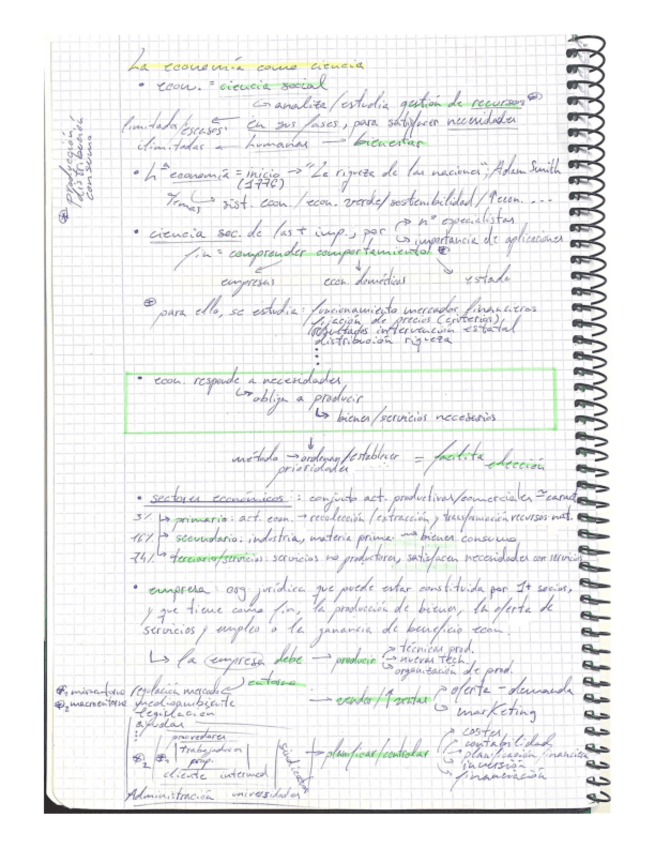 La economía como ciencia
• econ. = ciencia social
↳ analiza/estudia gestión de recursos ⊕
limitados/escasos. ← en sus fases, para satisfacer necesidades
ilimitadas ← humanas → bienestar
⊕ producción
distribución
consumo
• hª economía = inicio → "La riqueza de las naciones", Adam Smith
(1776)
Temas ↳ sist. econ./econ. verde/sostenibilidad/↑econ. ...
• ciencia soc. de las + imp., por ↱ nº especialistas
↳ importancia de aplicaciones
fin = comprender comportamiento ⊕
empresas econ. domésticas estado
⊕ para ello, se estudia: funcionamiento mercados financieros
fijación de precios (criterios)
resultados intervención estatal
distribución riqueza
• econ. responde a necesidades
↳ obliga a producir
↳ bienes/servicios necesarios
↓
método → ordenan/establecer = facilita elección
prioridades
• sectores económicos: conjunto act. productivas/comerciales ≃ caract
3% ↳ primario: act. econ. → recolección/extracción y transformación recursos nat.
16% ↳ secundario: industria, materia prima → bienes consumo
74% ↳ terciario/servicios: servicios no productores, satisfacen necesidades con servicios
• empresa: org jurídica que puede estar constituida por 1+ socios,
y que tiene como fin, la producción de bienes, la oferta de
servicios y empleo o la ganancia de beneficio econ.
↳ la empresa debe → producir → técnicas prod.
→ nuevas tech.
→ organización de prod.
entorno
⊕1 microentorno regulación mercado
⊕2 macroentorno medioambiente
legislación
ayudas
→ vender/↑ventas → oferta - demanda
→ marketing
proveedores
⊕2 ⊕1 trabajadores
prop.
cliente intermed
sindicatos
Administración universidades
→ planificar/controlar → costes
→ contabilidad
→ planificación financiera
→ inversión
→ financiación